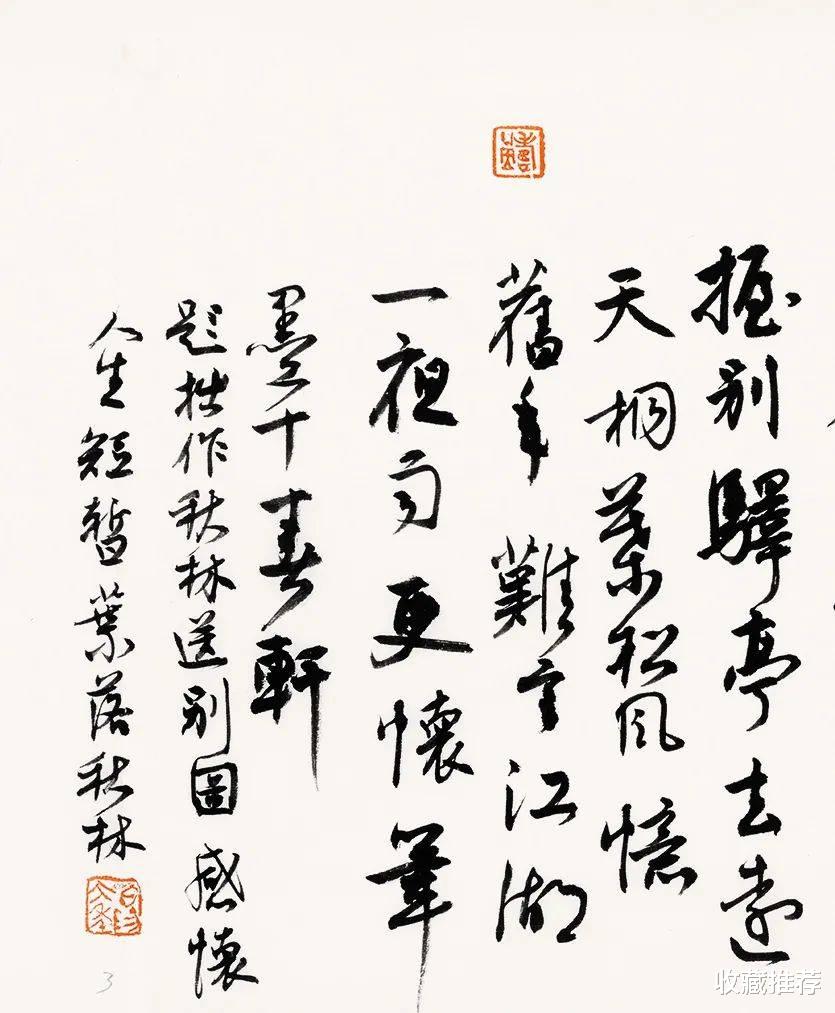 握别驛亭去遠
天桐葉松风憶
舊年難江湖
一夜雨更懷筆
墨十春軒
題拙作秋林送别圖感懷
人生短暫葉落秋林
3
收藏推荐